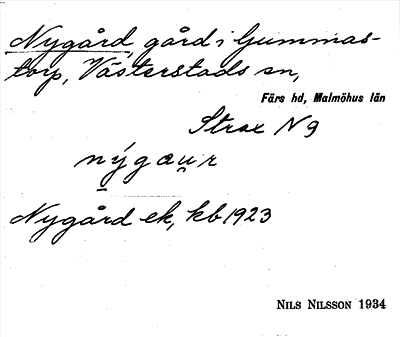 Nygård, gård i Gummas-
torp, Västerstads sn,
Färs hd, Malmöhus län
Strax N 9
nýgæu̯r
Nygård ek, kb 1923
NILS NILSSON 1934